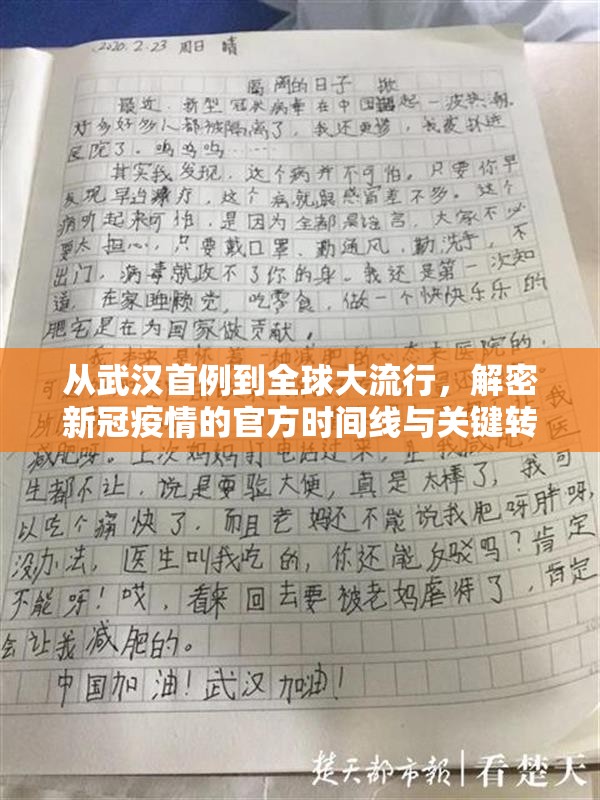 2020.2.23 周日 晴
隔离的日子
最近，新型冠状病毒在中国掀起一波热潮。
好多好多人都被隔离了，我还更惨，我被抓进
医院了。呜呜呜……
其实我发现，这个病并不可怕。只要你早
发现早治疗，这个病就跟感冒差不多。这个
病听起来可怕，是因为全都是谣言，大家不必
要太担心，只要戴口罩、勤通风，勤洗手，不
出门，病毒就攻不了你的身。我还是第一次知
道，在家睡懒觉，吃零食，做一个快快乐乐的
肥宅是在为国家做贡献。
从武汉首例到全球大流行，解密
新冠疫情的官方时间线与关键转
减肥呀。上次妈妈打电话过来，是我减肥，医
生都不让，说是要验大便，真是太棒了，我可
以吃个痛快了，而且老妈还不能说我肥呀胖呀，
没办法，医生叫我吃的，你还能反驳吗？肯定
不能呀！哎，看来回去要被老妈虐待了，肯定
会让我减肥的。
中国加油！武汉加油！
楚天都市报 看楚天